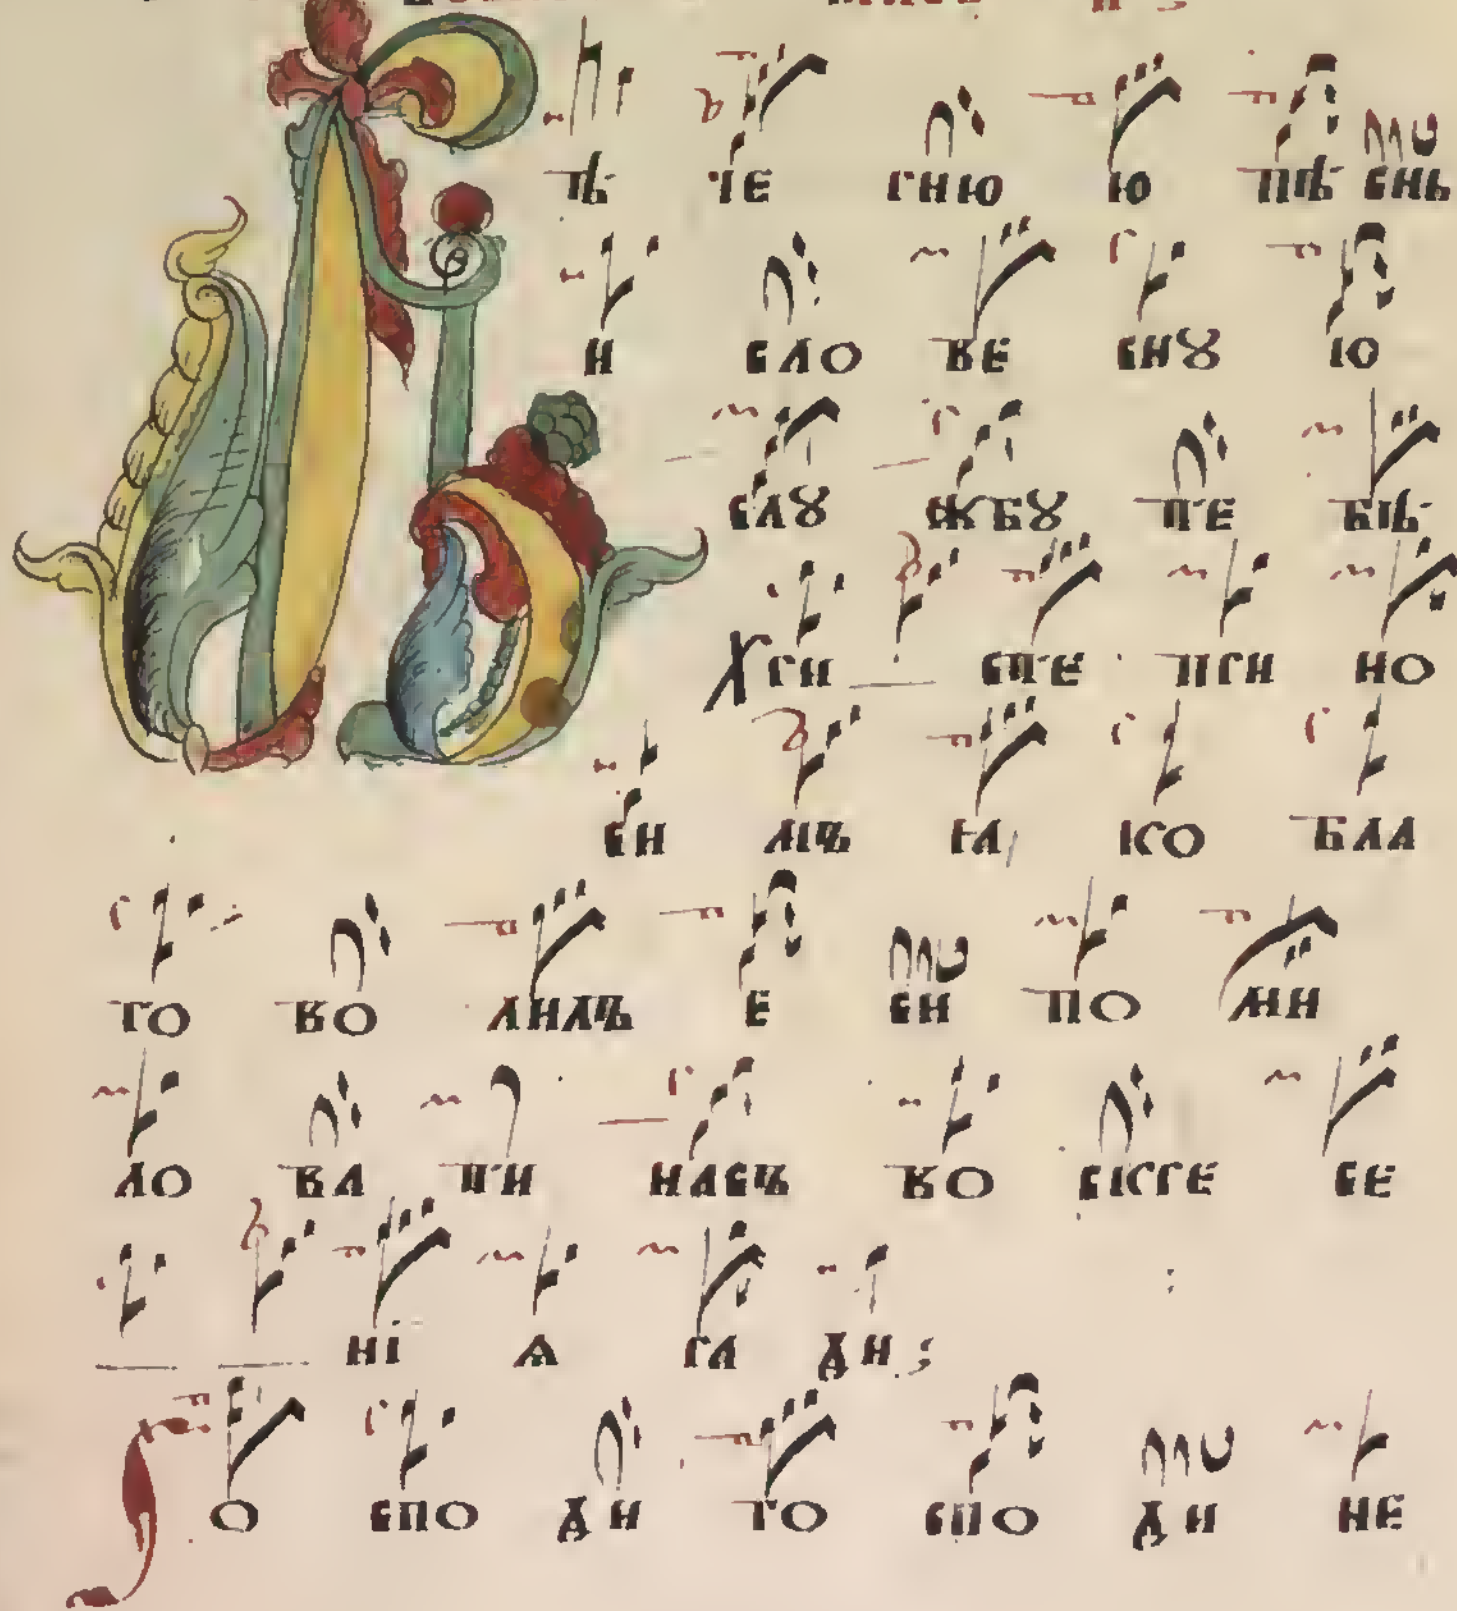 ѣ че рню ю пѣ снь
и сло ве снꙋ ю
слꙋ жбꙋ те бѣ
хри сте при но
си мъ ꙗ ко бла
го во лилъ е си по ми
ло ва ти насъ во скре се
ні ѧ ра ди
Го спо ди го спо ди не